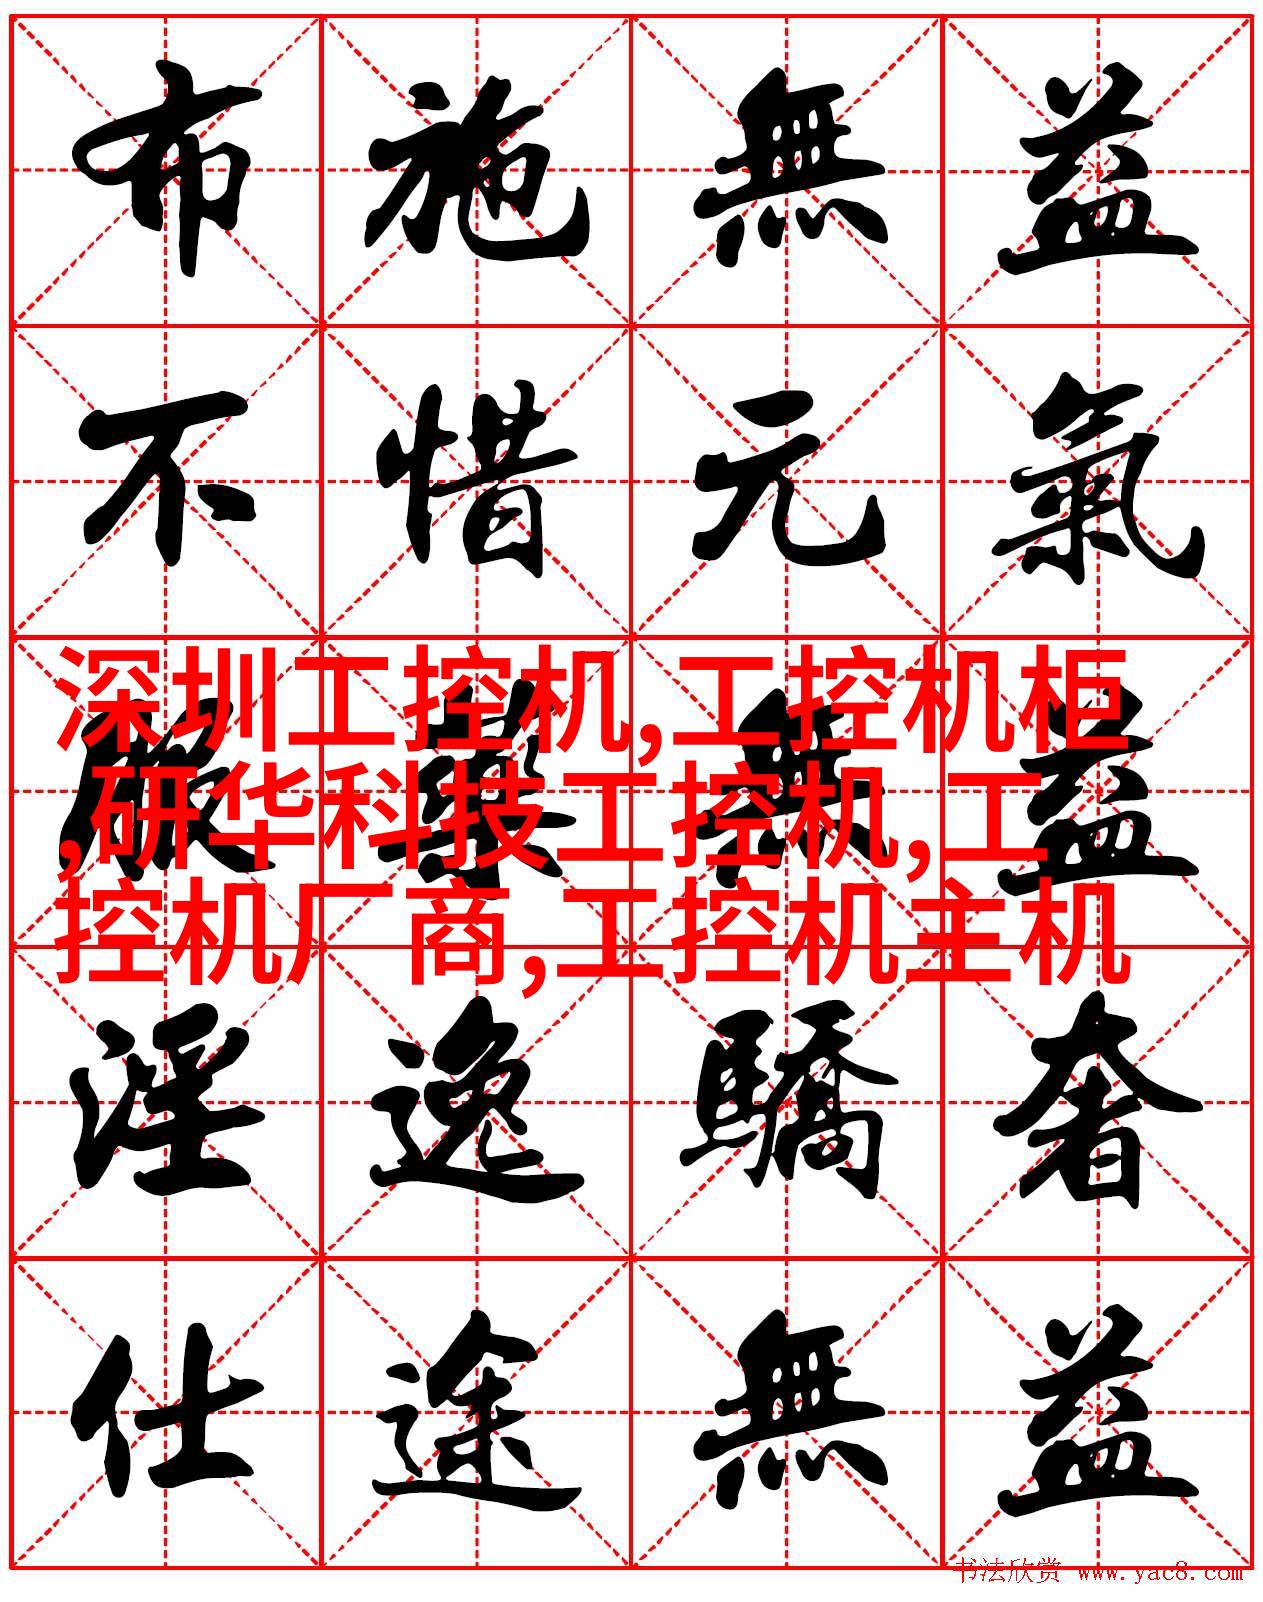 布施無益
不惜元氣
服藥無益
淫逸驕奢
仕途無益
深圳工控机,工控机柜
,研华科技工控机,工
控机厂商,工控机主机
书法欣赏 www.yac8.com